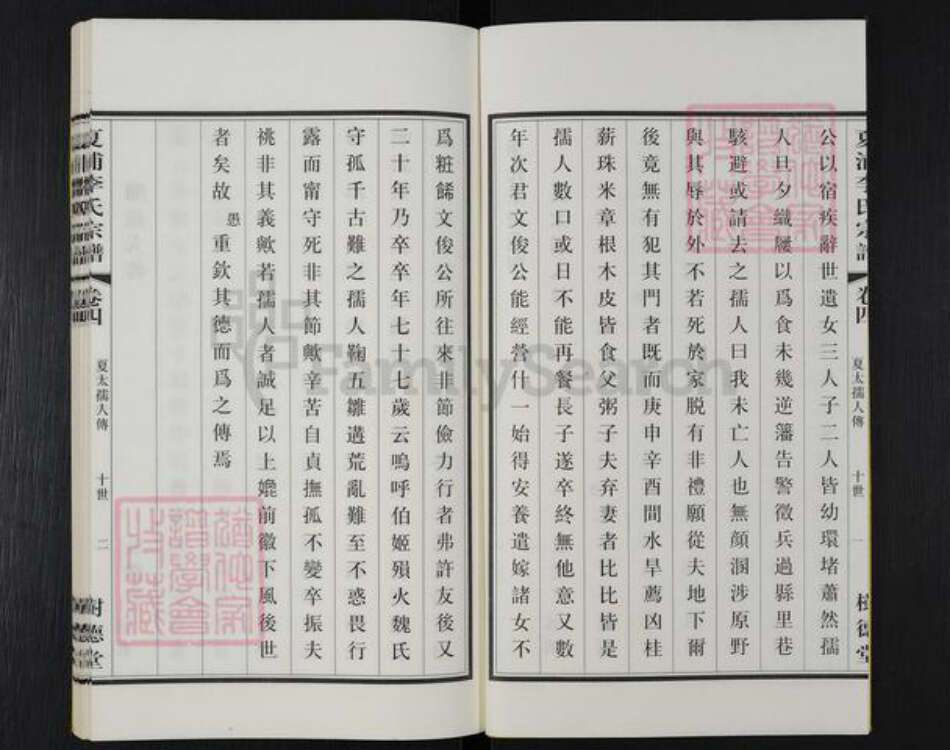 夏浦李氏宗譜
卷四
夏太孺人傳
十世
一
樹德堂
公以宿疾辭世遺女三人子二人皆幼環堵蕭然孺
人旦夕織屨以爲食未幾逆藩告警徵兵過縣里巷
駭避或請去之孺人曰我未亡人也無顔溷涉原野
與其辱於外不若死於家脱有非禮願從夫地下爾
後竟無有犯其門者既而庚申辛酉間水旱薦凶桂
薪珠米章根木皮皆食父粥子夫弃妻者比比皆是
孺人數口或日不能再餐長子遂卒終無他意又數
年次君文俊公能經營什一始得安養遣嫁諸女不
爲粧餙文俊公所往來非節儉力行者弗許友後又
二十年乃卒卒年七十七歲云嗚呼伯姬殞火魏氏
守孤千古難之孺人鞠五雛遘荒亂難至不惑畏行
露而甯守死非其節歟辛苦自貞撫孤不變卒振夫
祧非其義歟若孺人者誠足以上嬔前徽下風後世
者矣故愚重欽其德而爲之傳焉
夏浦李氏宗譜
卷四
夏太孺人傳
十世
二
樹德堂
FamilySearch